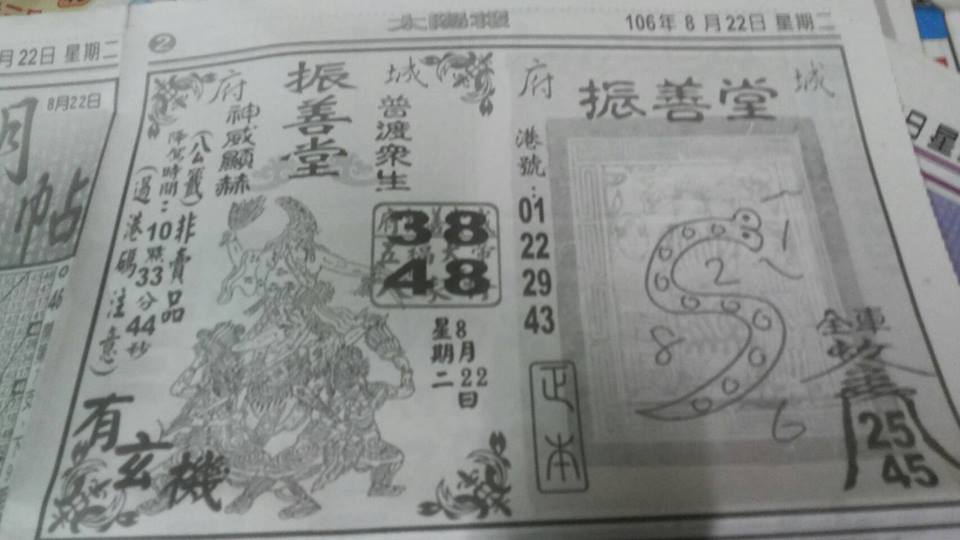 月22日 星期二
8月22日
2
太陽報
106年 8月22日 星期二
府城
振善堂
神威顯赫
普渡眾生
(八公籤)非賣品
降駕時間:10點33分44秒
(過港碼注意)
38
48
8月22日
星期二
有玄機
府城
振善堂
港號:
01
22
29
43
正本
1
2
8
6
全車
25
45
日 星